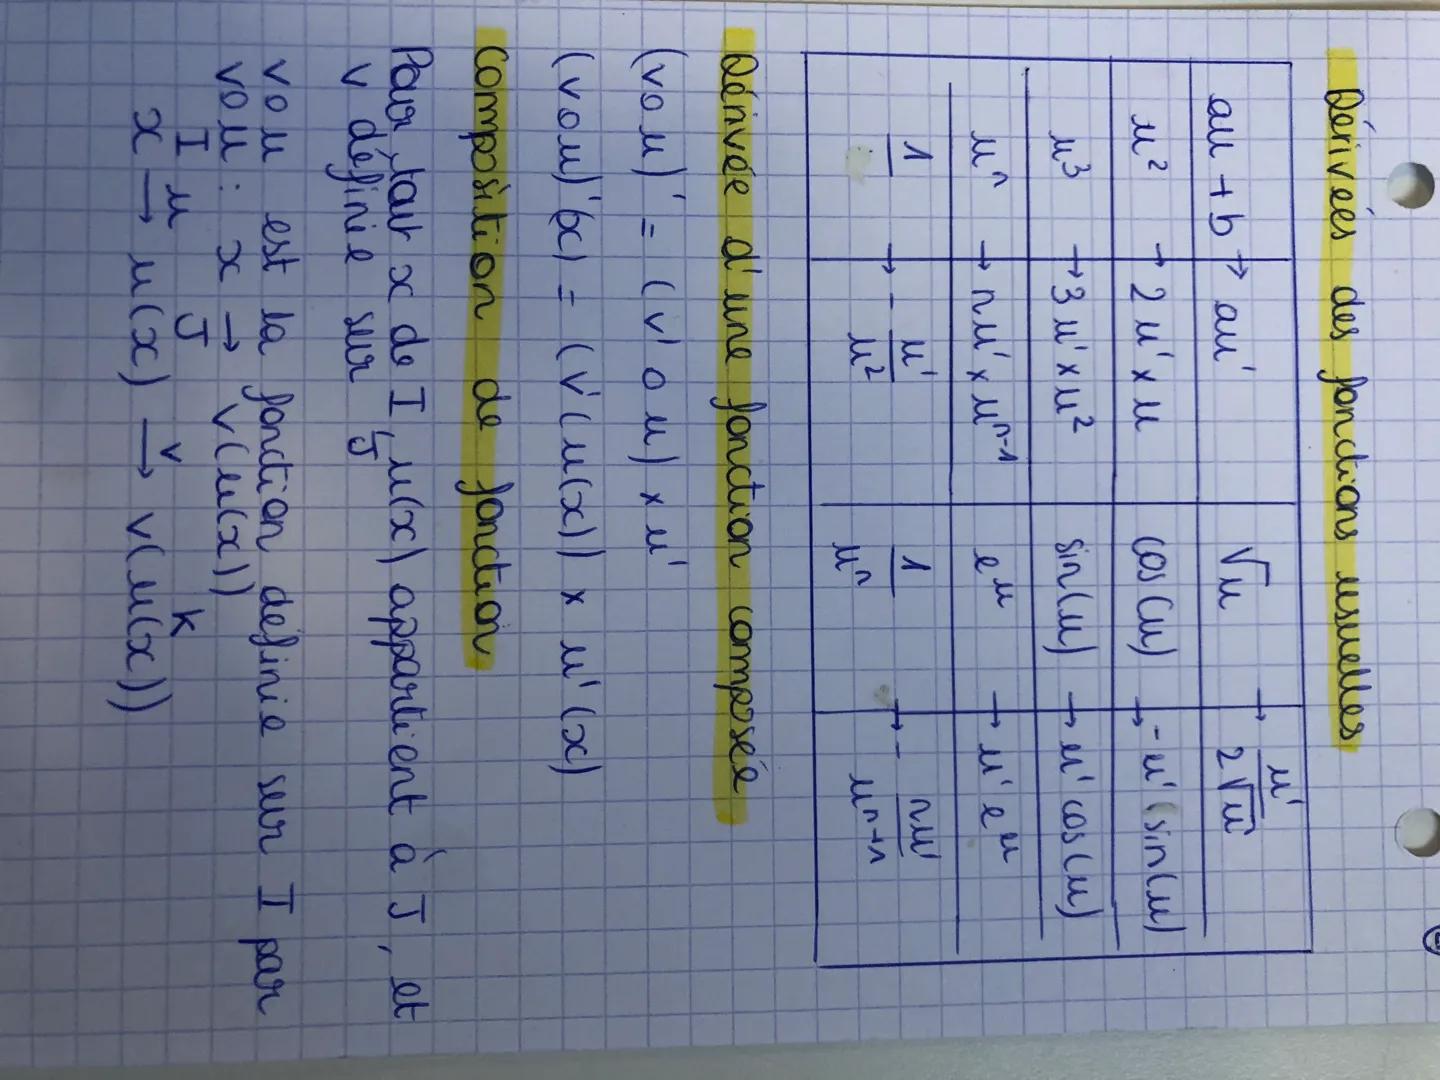 Dérivées des fonctions usuelles
au + b → au'
√u → u' / 2√u
u² → 2u' × u
cos(u) → -u'(sin(u)
u³ → 3u' × u²
sin(u) → u' cos(u)
uⁿ → nu' × uⁿ⁻¹
eᵘ → u' eᵘ
1 → - u' / u²
1 / uⁿ → - nu' / uⁿ⁺¹
Dérivée d'une fonction composée
(v o u)' = (v' o u) × u'
(v o u)'(x) = (v'(u(x)) × u'(x)
Composition de fonction
Pour tout x de I, u(x) appartient à J, et
v définie sur J
v o u est la fonction définie sur I par
v o u : x → v(u(x))
I u J v k
x → u(x) → v(u(x))